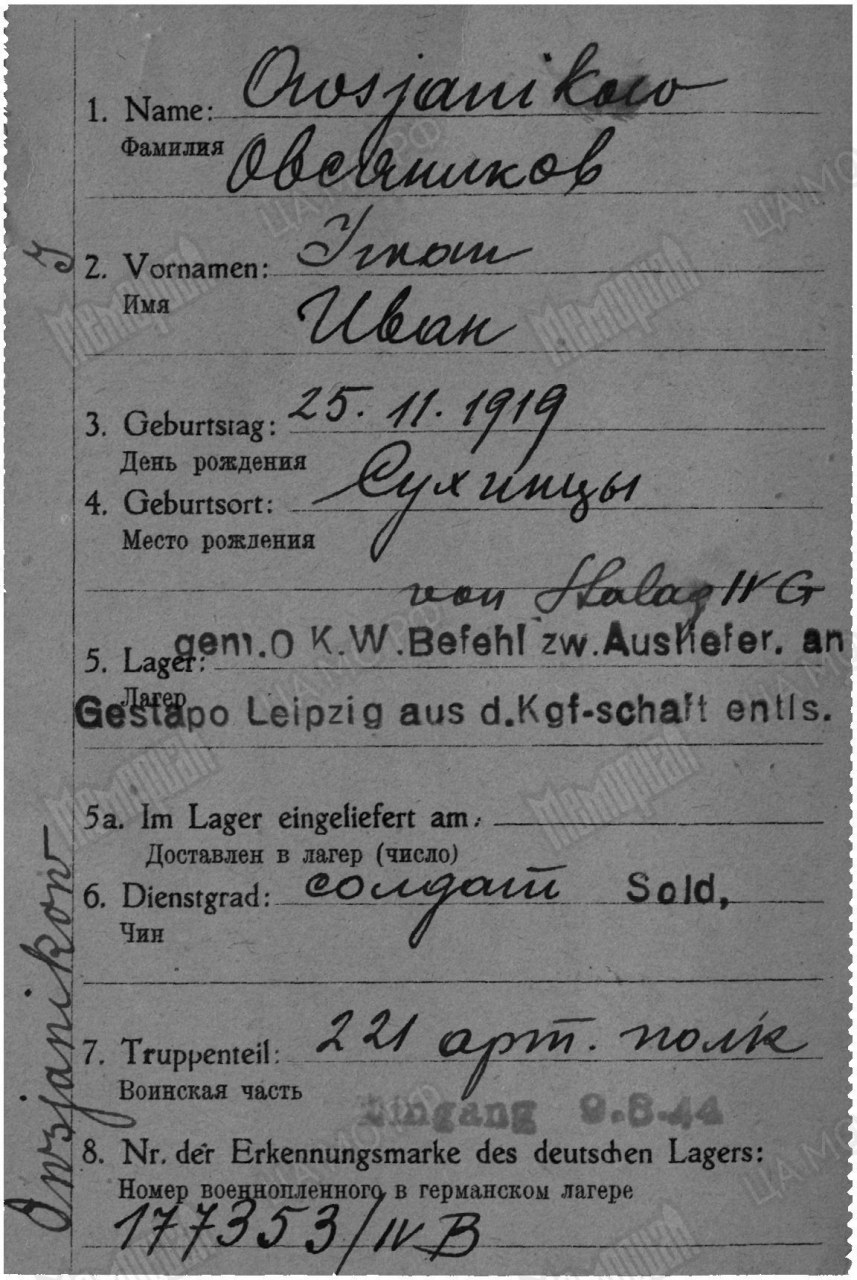 1. Name: Owsjanikow
Фамилия Овсяников
2. Vornamen: Iwan
Имя Иван
3. Geburtstag: 25. 11. 1919
День рождения
4. Geburtsort: Сухинцы
Место рождения
von Stalag IV G
gem.O K.W.Befehl zw.Ausliefer. an
5. Lager:
Лагер
Gestapo Leipzig aus d.Kgf-schaft entls.
5a. Im Lager eingeliefert am:
Доставлен в лагер (число)
6. Dienstgrad: солдат Sold,
Чин
7. Truppenteil: 221 арт. полк
Воинская часть
Eingang 9.8.44
8. Nr. der Erkennungsmarke des deutschen Lagers:
Номер военнопленного в германском лагере
177353/IV B
J
Owsjanikow
Мемориал
Мемориал
Мемориал
Мемориал
ЦАМО РФ
ЦАМО РФ
ЦАМО РФ